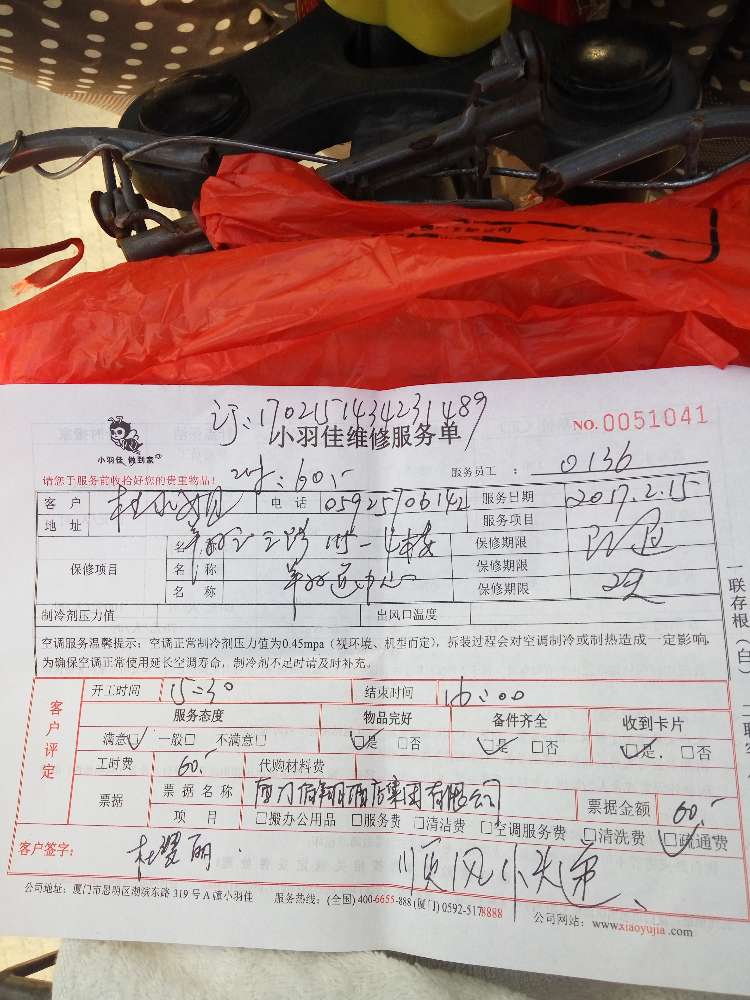 订:1702151434231489
小羽佳 做到家
小羽佳维修服务单
NO. 0051041
请您于服务前收拾好您的贵重物品!
60.-
服务员工 : 0136
客 户 杜小姐 电 话 05925706142 服务日期 2017.2.15
地 址 服务项目
保修项目 名 称 保修期限
名 称 保修期限
名 称 保修期限
制冷剂压力值 出风口温度
空调服务温馨提示: 空调正常制冷剂压力值为0.45mpa (视环境、机型而定), 拆装过程会对空调制冷或制热造成一定影响,
为确保空调正常使用延长空调寿命, 制冷剂不足时请及时补充。
一联存根(白)
客户评定
开工时间 15:30 结束时间 16:00
服务态度 物品完好 备件齐全 收到卡片
满意☑ 一般□ 不满意□ ☑是 □否 ☑是 □否 ☑是. □否
工时费 60.- 代购材料费
票据 票 据 名 称 厦门佰翔酒店集团有限公司 票据金额 60.-
项 目 □搬办公用品 □服务费 □清洁费 □空调服务费 □清洗费 ☑疏通费
客户签字: 杜翠丽 顺风
公司地址: 厦门市思明区湖滨东路 319 号 A 幢小羽佳 服务热线: (全国) 400-6655-888 (厦门) 0592-5178888 公司网站: www.xiaoyujia.com